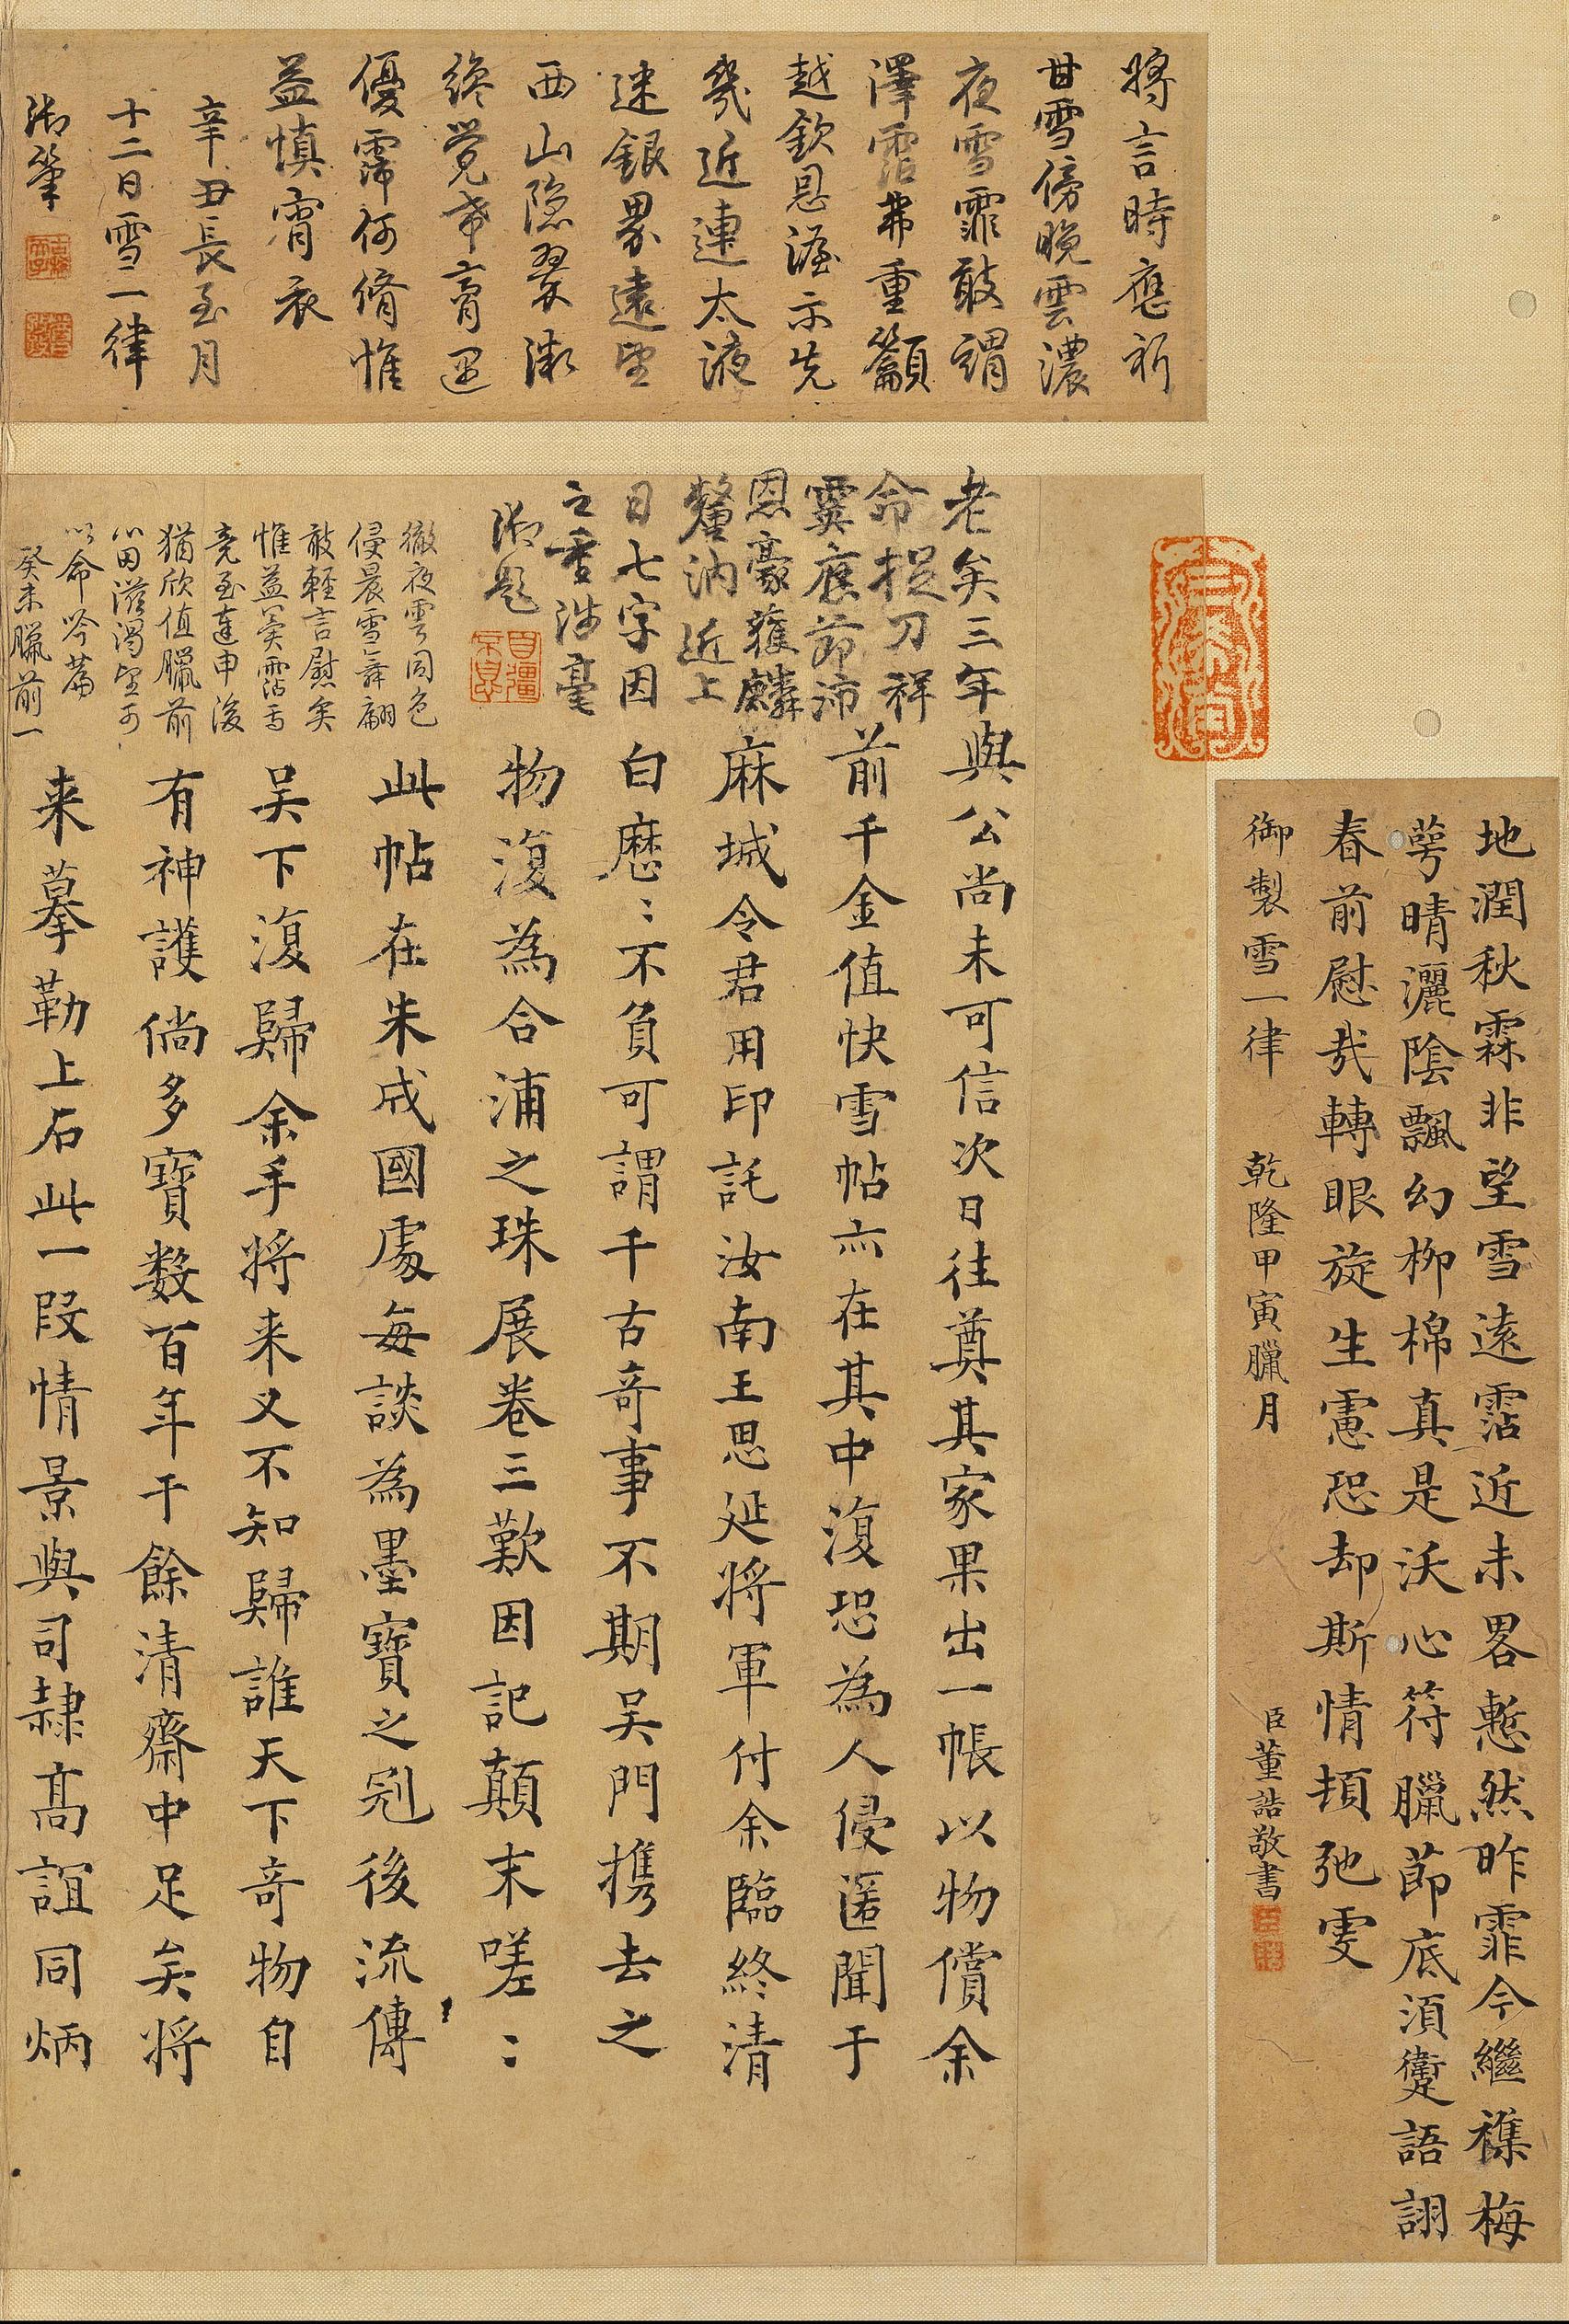 地潤秋霖非望雪遠霑近未畧慙然昨霏今繼襍梅
萼晴灑陰飄幻柳棉真是沃心符臘節底須躗語詡
春前慰哉轉眼旋生慮恐却斯情頓弛雯
御製雪一律 乾隆甲寅臘月 臣董誥敬書
將言時應祈
甘雪傍晚雲濃
夜雪霏敢謂
澤霑弗重籲
越欽恩渥示先
幾近連太液
迷銀界遠望
西山隐翠微
終覺希膏遲
優霈何脩惟
益慎宵衣
辛丑長至月
十二日雪一律
御筆
老矣三年
命捉刀祥
霙應節沛
恩豪獲麟
釐汭近上
日七字因
之重涉毫
御題
徹夜雲同色
侵晨雪舞翩
敢輕言慰矣
惟益冀霑焉
竞至達申後
猶欣值臘前
心田滋渴望可
以命吟篇
癸未臘前一
與公尚未可信次日往奠其家果出一帳以物償余
前千金值快雪帖亦在其中復恐為人侵匿聞于
麻城令君用印託汝南王思延將軍付余臨終清
白歷〻不負可謂千古奇事不期吳門携去之
物復為合浦之珠展卷三歎因記顛末嗟〻
此帖在朱成國處每談為墨寶之冠後流傳
吴下復歸余手將来又不知歸誰天下奇物自
有神護倘多寶數百年于餘清齋中足矣將
来摹勒上石此一段情景與司隸髙誼同炳